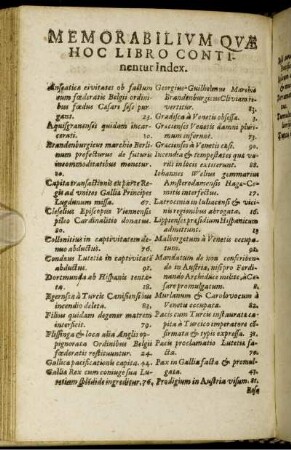 MEMORABILIVM QVÆ
HOC LIBRO CONTI-
nentur Index.
Anseaticæ civitates ob factum
cum fœderatis Belgii ordini
bus fœdus Cæsare sese pur
gant. 23.
Aquisgranenses quidam incar-
cerati. 10.
Brandenburgicus marchio Berlin
um profecturus de futuris
incommoditatibus monetur.
Capita transactionis ex parte Re-
gis ad unites Gallia Principes
Lugdunum missa. 67.
Cleselius Episcopus Viennensis
pileo Cardinalitio donatus.
80.
Collenitius in captivitatem de-
ductus. 76.
Condæus Lutetia in captivitatem
abductus. 92.
Dortmunda ab Hispanis tenta-
ta. 18.
Egerusca à Turcis Canisiensibus
incendio deleta. 93.
Filius quidam degener matrem
interficit. 79.
Flissinga & loca alia Anglis op-
pignorata Ordinibus Belgii
fœderatis restituuntur. 24.
Gallica pacificationis capita. 44.
Gallia Rex cum coniuge sua Lu-
tetiam splēdidè ingreditur. 76.
Georgius Guilhelmus Marchio
Brandenburgicus Cliviam re-
vertitur. 13.
Gradisca à Venetis obsessa. 3.
Gracensis Venetis damni pluri-
mum inferunt.
Gracensis à Venetis cæsi. 90.
Incendia & tempestates qua va-
riis in locis extiterunt. 18.
Iohannes Welius gemmarius
Amsterodamensis Hage-Co-
mitis interficitur. 16.
Latrocinia in Lusacensi & vici-
nis regionibus abrogata. 16.
Lippenses præsidium Hispanicum
admittunt. 19.
Maliorgetum à Venetis occupa-
tum. 90.
Mandatum de non conscriben-
do in Austria, iussu pro Ferdi-
nando Archiduce milite, à Cæ-
sare promulgatum. 8.
Murlanum & Carolovocum à
Venetis occupata. 81.
Pacis cum Turcis instaurata ca-
pita à Turcico imperatore cō-
firmata & typis expressa. 31.
Pacis proclamatio Lutetiæ fa-
cta. 76.
Pax in Gallia facta & promul-
gata. 43.
Prodigium in Austria visum. 21.
Eiſa